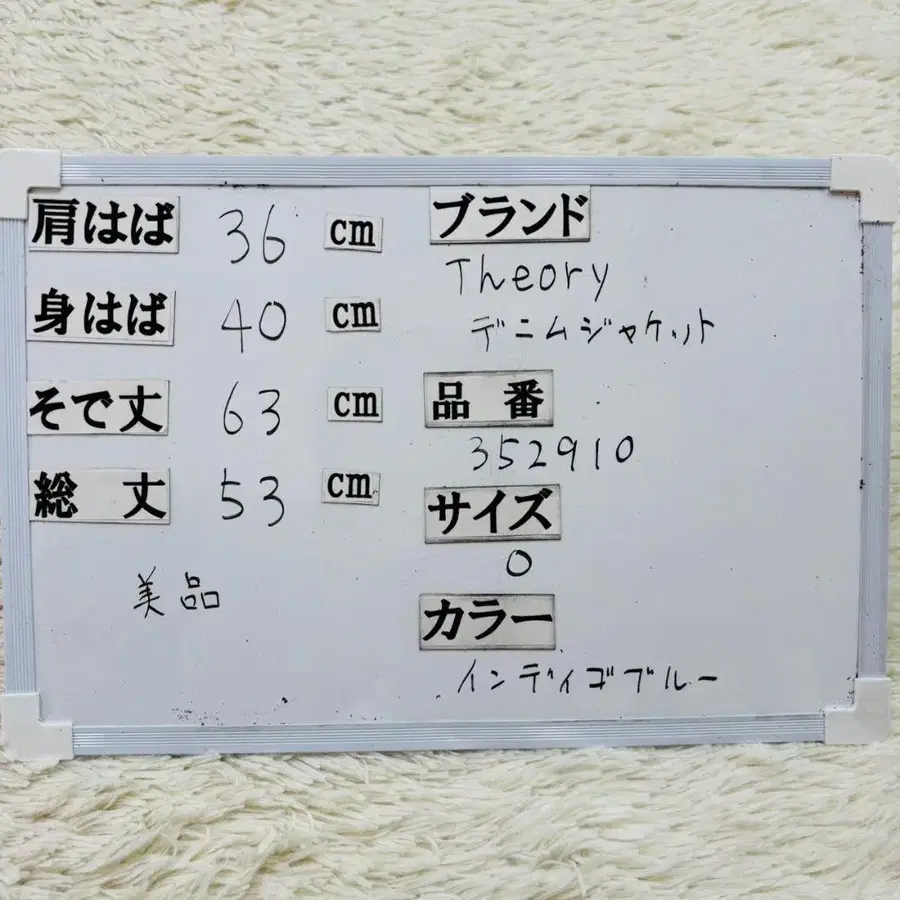 肩はば 36 cm
身はば 40 cm
そで丈 63 cm
総丈 53 cm
美品
ブランド
Theory
デニムジャケット
品番
352910
サイズ
0
カラー
インディゴブルー